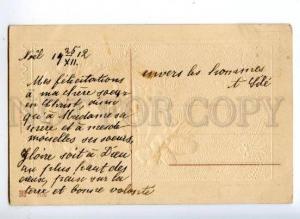 Noël 19 25/XII. 12
Mes félicitations
à ma chère soeur
en Christ, ainsi
qu'à Madame sa
mère et à mesde-
moiselles ses soeurs,
Gloire soit à Dieu
au plus haut des
cieux, paix sur la
terre et bonne volonté
envers les hommes